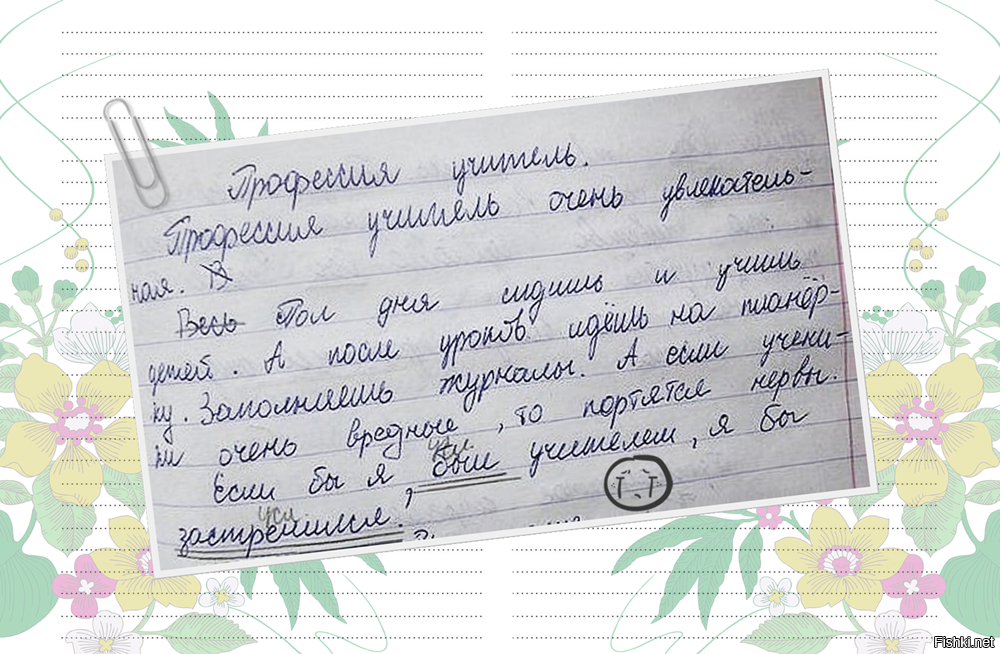 Профессия учитель.
Профессия учитель очень увлекатель-
ная. В
Весь Пол дня сидишь и учишь
детей. А после уроков идёшь на планёр-
ку. Заполняешь журналы. А если учени-
ки очень вредные, то портятся нервы.
усл
Если бы я был учителем, я бы
усл
застрелился.
Fishki.net